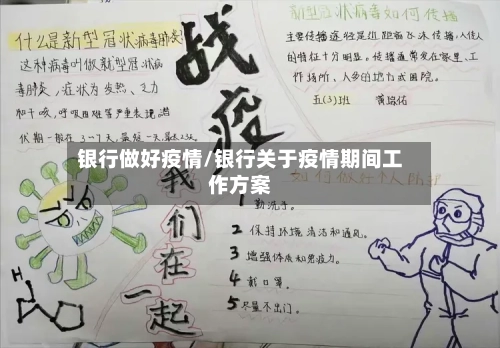 什么是新型冠状病毒肺炎
这种病毒叫做新型冠状病
毒肺炎,症状为发热、乏力
和干咳,呼吸困难等严重表现潜
伏期一般在3一7天,最短一天,最长
战疫
我们在一起
新型冠状病毒如何传播
主要传播途径是近距离飞沫传播,人传人
的特征十分明显。传播通常发生在家里、工
作场所、人多的地方或医院。
五(3)班
银行做好疫情/银行关于疫情期间工
作方案
1 勤洗手。
2 保持环境清洁和通风。
3 增强体质和免疫力。
4 戴口罩。
5 尽量不出门。
H